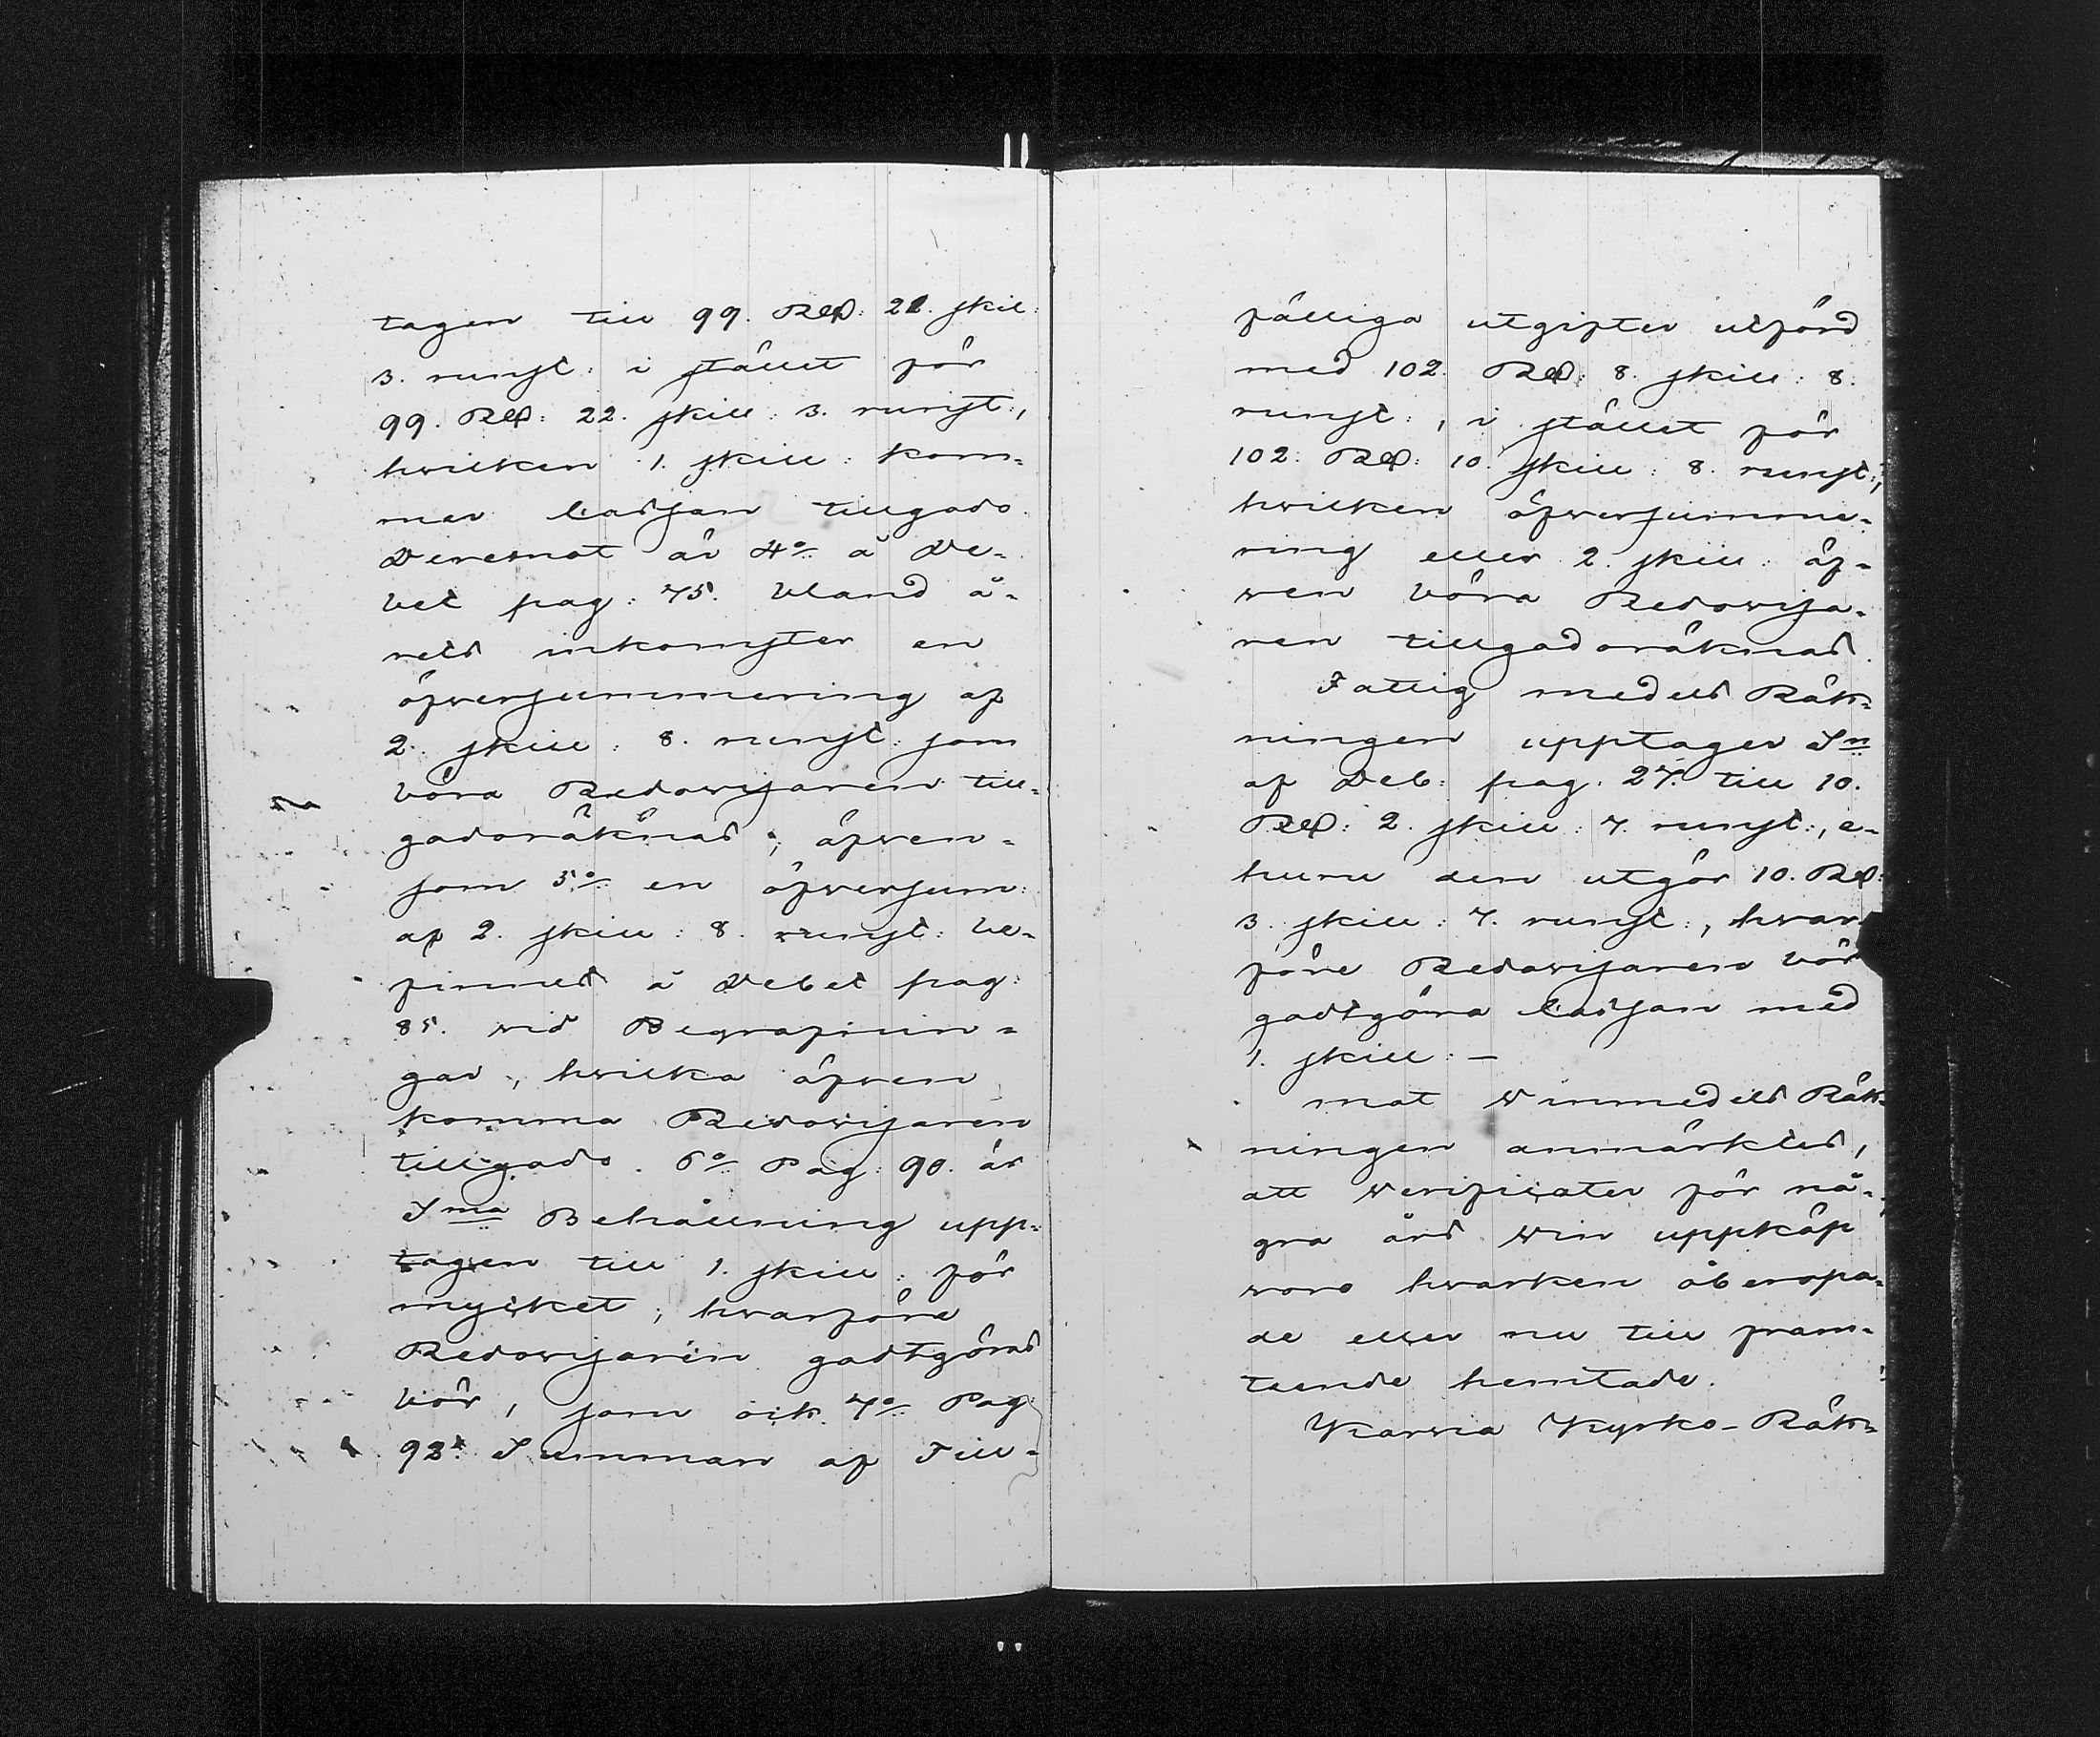 tagen till 99. Rd: 21. skil:
3. runst: i stället för
99. Rd: 22. skill: 3. runst:,
hvilken 1. skill: kom=
mer Cassan tillgodo.
Deremot är 4:o å De=
bet pag: 75. bland å=
rets inkomster en
öfversummering af
2. skill: 8. runst: som
böra Redovisaren till=
godoräknas; äfven=
som 5:o en öfversum:
af 2. skill: 8. runst: be=
finnes å Debet pag:
85. vid Begrafnin=
gar, hvilka äfven
komma Redovisaren
tillgodo. 6:o Pag: 90. är
S:ma Behållning upp=
tagen till 1. skill: för
mycket, hvarföre
Redovisaren godtgöras
bör, som ock 7:o Pag:
92. Summan af Till=
fälliga utgifter utförd
med 102. Rd: 8. skill: 8.
runst:, i stället för
102. Rd: 10. skill: 8. runst:,
hvilken öfversumme=
ring eller 2. skill: äf=
ven böra Redovisa=
ren tillgodoräknas.
Fattig medels Räk=
ningen upptager S:n
af Deb: pag. 27. till 10.
Rd: 2. skill: 7. runst:, e=
huru den utgör 10. Rd:
3. skill: 7. runst:, hvar=
före Redovisaren bör
godtgöra Cassan med
1. skill: —
mot Winmedels Räk=
ningen anmärktes,
att Verificater för nå=
gra års Win uppköp
voro hvarken åberopa=
de eller nu till fram=
teende hemtade.
Karvia Kyrko-Räk=